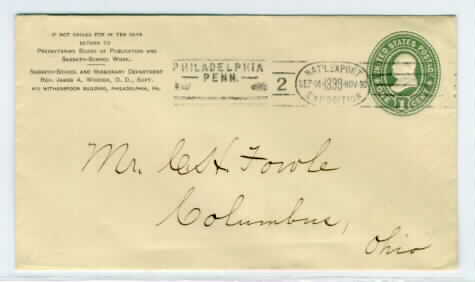 IF NOT CALLED FOR IN TEN DAYS
RETURN TO
PRESBYTERIAN BOARD OF PUBLICATION AND
SABBATH-SCHOOL WORK.
SABBATH-SCHOOL AND MISSIONARY DEPARTMENT
REV. JAMES A. WORDEN, D. D., SUPT.
WITHERSPOON BUILDING, PHILADELPHIA, PA.
PHILADELPHIA
PENN.
2
NAT'L EXPORT
SEP-14-1899-NOV-30
EXPOSITION
UNITED STATES POSTAGE
ONE 1 CENT
Mr. C H Fowle
Columbus,
Ohio